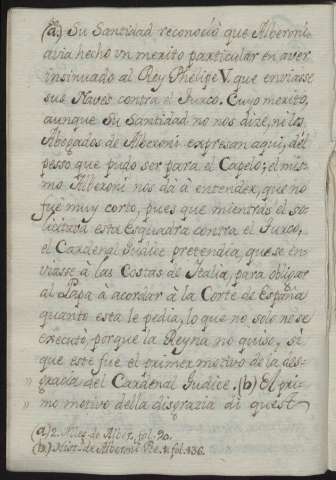 (a) Su Santidad reconoció que Alberoni
avia hecho vn merito particular en aver
insinuado al Rey Phelipe V. que enviasse
sus Naves contra el Turco. Cuyo merito,
aunque Su Santidad no nos dize, ni los
Abogados de Alberoni expresan aqui, del
pesso que pudo ser para el Capelo; el mis-
mo Alberoni nos dà à entender, que no
fue muy corto, pues que mientras el so-
licitava esta Esquadra contra el Turco,
el Cardenal Iudice pretendia, que se en-
viasse à las Costas de Italia, para obligar
al Papa à acordar à la Corte de España
quanto esta le pedia, lo que no solo no se
executò porque la Reyna no quiso, sì
que este fue el primer motivo de la des-
gracia del Cardenal Iudice. (b) El pri-
mo motivo della disgrazia di quest
(a) 2. Aleg. de Alber. fol. 90.
(b) Histr. de Alberoni Pte. 1. fol. 136.